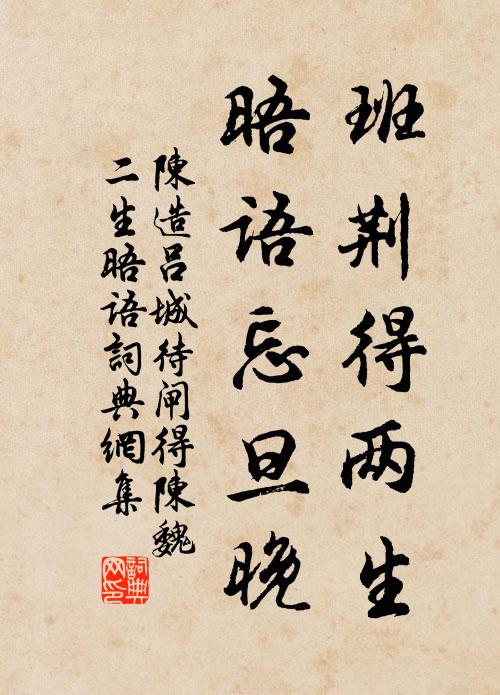 班荆得两生
晤语忘旦晚
陳造吕城待闸得陳魏
二生晤语詞典網集
詞典
网印